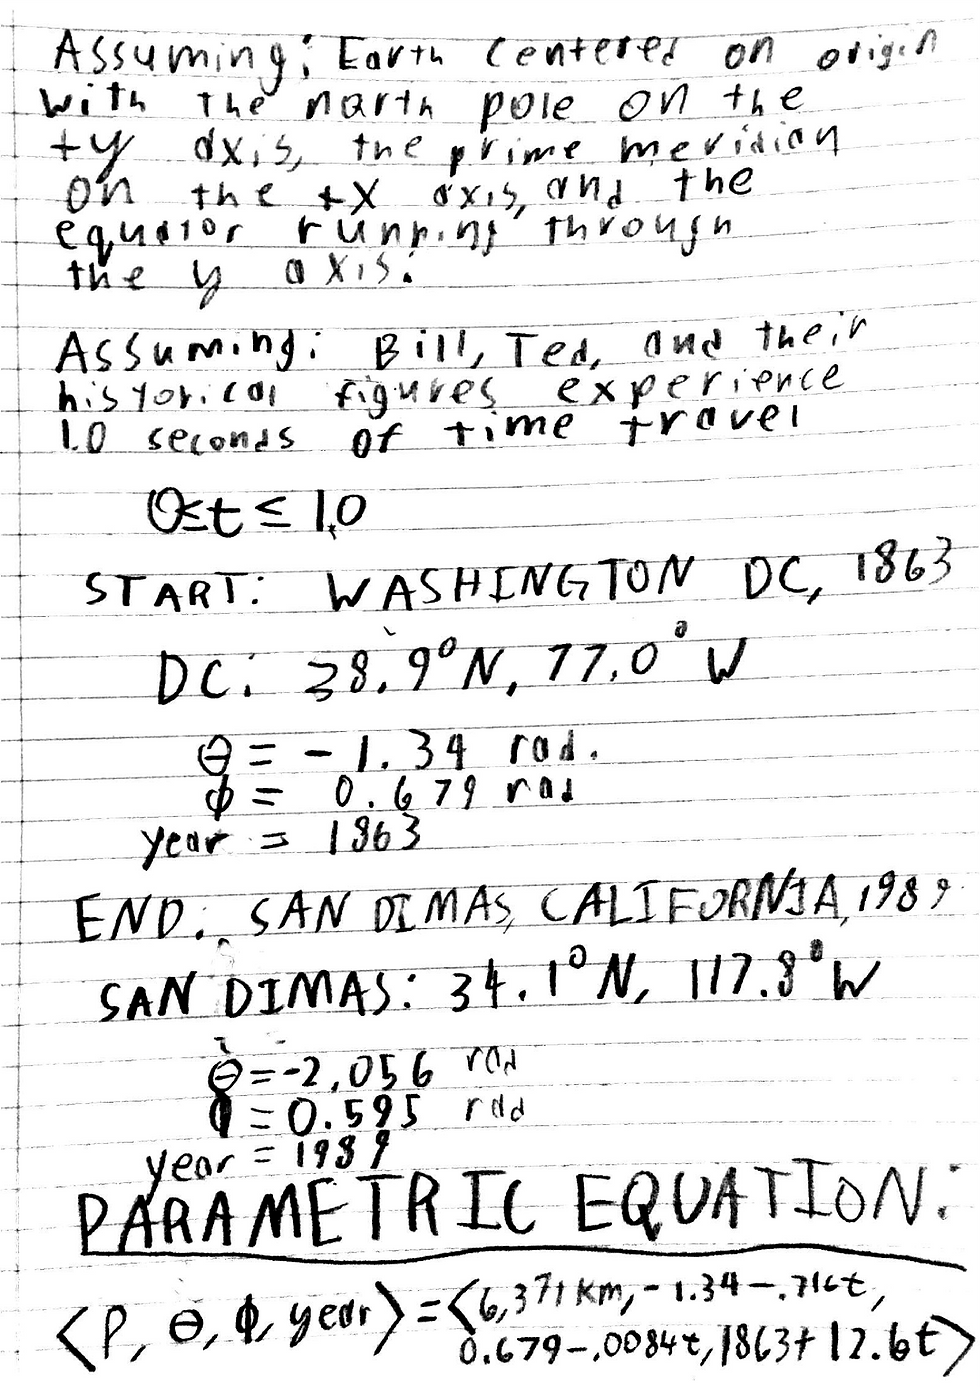 Assuming: Earth centered on origin
with the north pole on the
+y axis, the prime meridian
on the +x axis, and the
equator running through
the y axis:
Assuming: Bill, Ted, and their
historical figures experience
1.0 seconds of time travel
0≤t ≤ 1.0
START: WASHINGTON DC, 1863
DC: 38.9°N, 77.0° W
θ = -1.34 rad.
ϕ = 0.679 rad
year = 1863
END: SAN DIMAS, CALIFORNIA, 1989
SAN DIMAS: 34.1°N, 117.8°W
θ = -2.056 rad
ϕ = 0.595 rad
year = 1989
PARAMETRIC EQUATION:
<ρ, θ, ϕ, year> = <6,371 km, -1.34-.716t,
0.679-.0084t, 1863+12.6t>